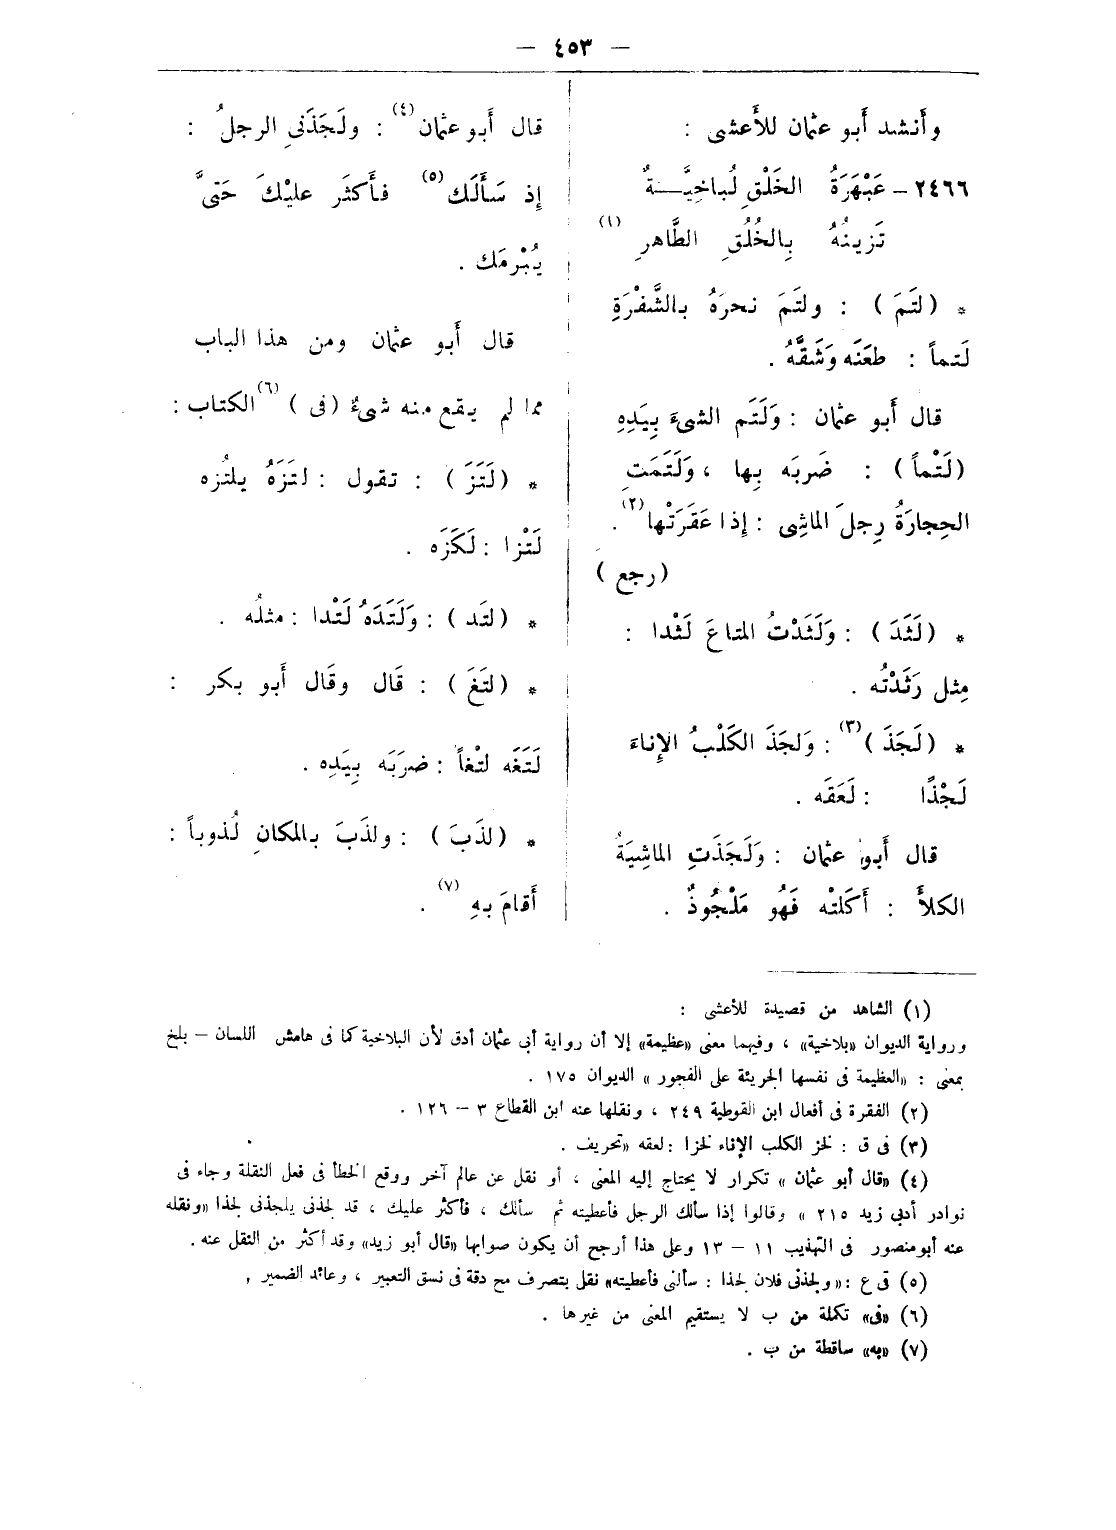 — ٤٥٣ —
وأنشد أبو عثمان للأعشى :
٢٤٦٦ – عَبْهَرَةُ الخَلْقِ لُباخِيَّـــةٌ
تَزينُهُ بِالخُلُقِ الطَّاهرِ (١)
* (لتَمَ) : ولتَمَ نحرَهُ بالشَّفْرَةِ
لَتماً : طعَنَه وَشَقَّهُ .
قال أَبو عثمان : وَلَتَم الشىءَ بِيَدِهِ
(لَتْماً) : ضَربَه بِها ، وَلَتَمَتِ
الحِجارَةُ رِجلَ الماشِى : إِذا عَقَرَتْها (٢) .
(رجع)
* (لَثَدَ) : وَلَثَدْتُ المتاعَ لَثْدا :
مِثل رَثَدْتُه .
* (لَجَذَ) (٣) : وَلجَذَ الكَلْبُ الإِناءَ
لَجْذًا : لَعَقَه .
قال أَبو عثمان : وَلَجَذَتِ الماشِيَةُ
الكلأَ : أَكَلتْه فَهُو مَلْجُوذٌ .
قال أَبو عثمان (٤) : ولَجَذَنى الرجلُ :
إِذ سَأَلَك (٥) فأَكثَر عليْكَ حَتىَّ
يُبْرمَك .
قال أَبو عثمان ومن هذا الباب
مما لم يقع منه شىءٌ (فى) (٦) الكتاب :
* (لَتَزَ) : تقول : لتَزَهُ يلتُزه
لَتْزا : لَكَزَه .
* (لتَد) : وَلَتَدَهُ لَتْدا : مثلُه .
* (لتَغَ) : قَال وقَال أَبو بكر :
لَتَغَه لتْغاً : ضرَبَه بِيَدِه .
* (لذَبَ) : ولذَبَ بالمكانِ لُذوباً :
أَقامَ بهِ (٧) .
(١) الشاهد من قصيدة للأعشى :
ورواية الديوان «بلاخية» ، وفيهما معنى «عظيمة» إلا أن رواية أبى عثمان أدق لأن البلاخية كما فى هامش اللسان – بلخ
بمعنى : «العظيمة فى نفسها الجريئة على الفجور» الديوان ١٧٥ .
(٢) الفقرة فى أفعال ابن القوطية ٢٤٩ ، ونقلها عنه ابن القطاع ٣ – ١٢٦ .
(٣) فى ق : لجز الكلب الإناء لجزا : لعقه «تحريف .
(٤) «قال أبو عثمان» تكرار لا يحتاج إليه المعنى ، أو نقل عن عالم آخر ووقع الخطأ فى فعل النقلة وجاء فى
نوادر أبى زيد ٢١٥ » وقالوا إذا سألك الرجل فأعطيته ثم سألك ، فأكثر عليك ، قد لجذنى يلجذنى لجذا «ونقله
عنه أبومنصور فى التهذيب ١١ – ١٣ وعلى هذا أرجح أن يكون صوابها «قال أبو زيد» وقد أكثر من النقل عنه .
(٥) فى ع : «ولجذنى فلان لجذا : سألنى فأعطيته» نقل بتصرف مع دقة فى نسق التعبير ، وعائد الضمير .
(٦) «فى» تكملة من ب لا يستقيم المعنى من غيرها .
(٧) «به» ساقطة من ب .